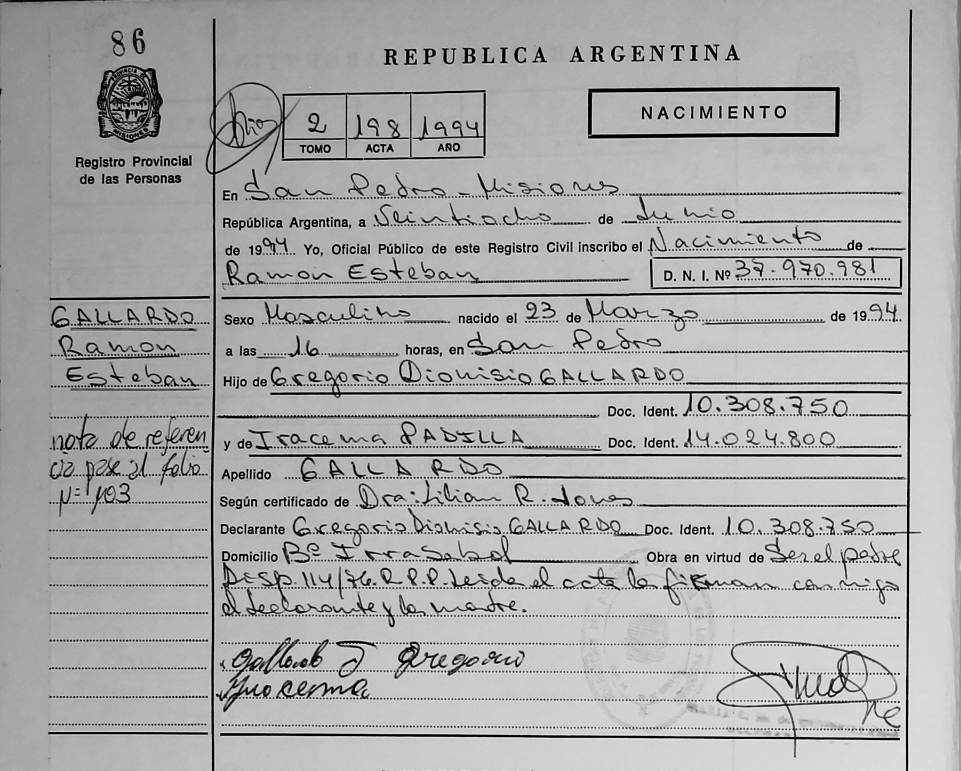 86
REPUBLICA ARGENTINA
PROVINCIA DE MISIONES
Registro Provincial
de las Personas
2 198 1994
TOMO ACTA AÑO
NACIMIENTO
En San Pedro - Misiones
República Argentina, a Veintiocho de Junio
de 1994 Yo, Oficial Público de este Registro Civil inscribo el Nacimiento de
Ramon Esteban D. N. I. Nº 37.970.981
GALLARDO
Ramon
Esteban
nota de referen
cia pase al folio
Nº 103
Sexo Masculino nacido el 23 de Marzo de 1994
a las 16 horas, en San Pedro
Hijo de Gregorio Dionisio GALLARDO
Doc. Ident. 10.308.750
y de Iracema PADILLA Doc. Ident. 14.024.800
Apellido GALLARDO
Según certificado de Dra: Lilian R. Jones
Declarante Gregorio Dionisio GALLARDO Doc. Ident. 10.308.750
Domicilio Bº Irrasabal Obra en virtud de Ser el padre
Disp. 114/76. R.P.P. Leida el acta la firman conmigo
el declarante y la madre.
Gallardo D Gregorio